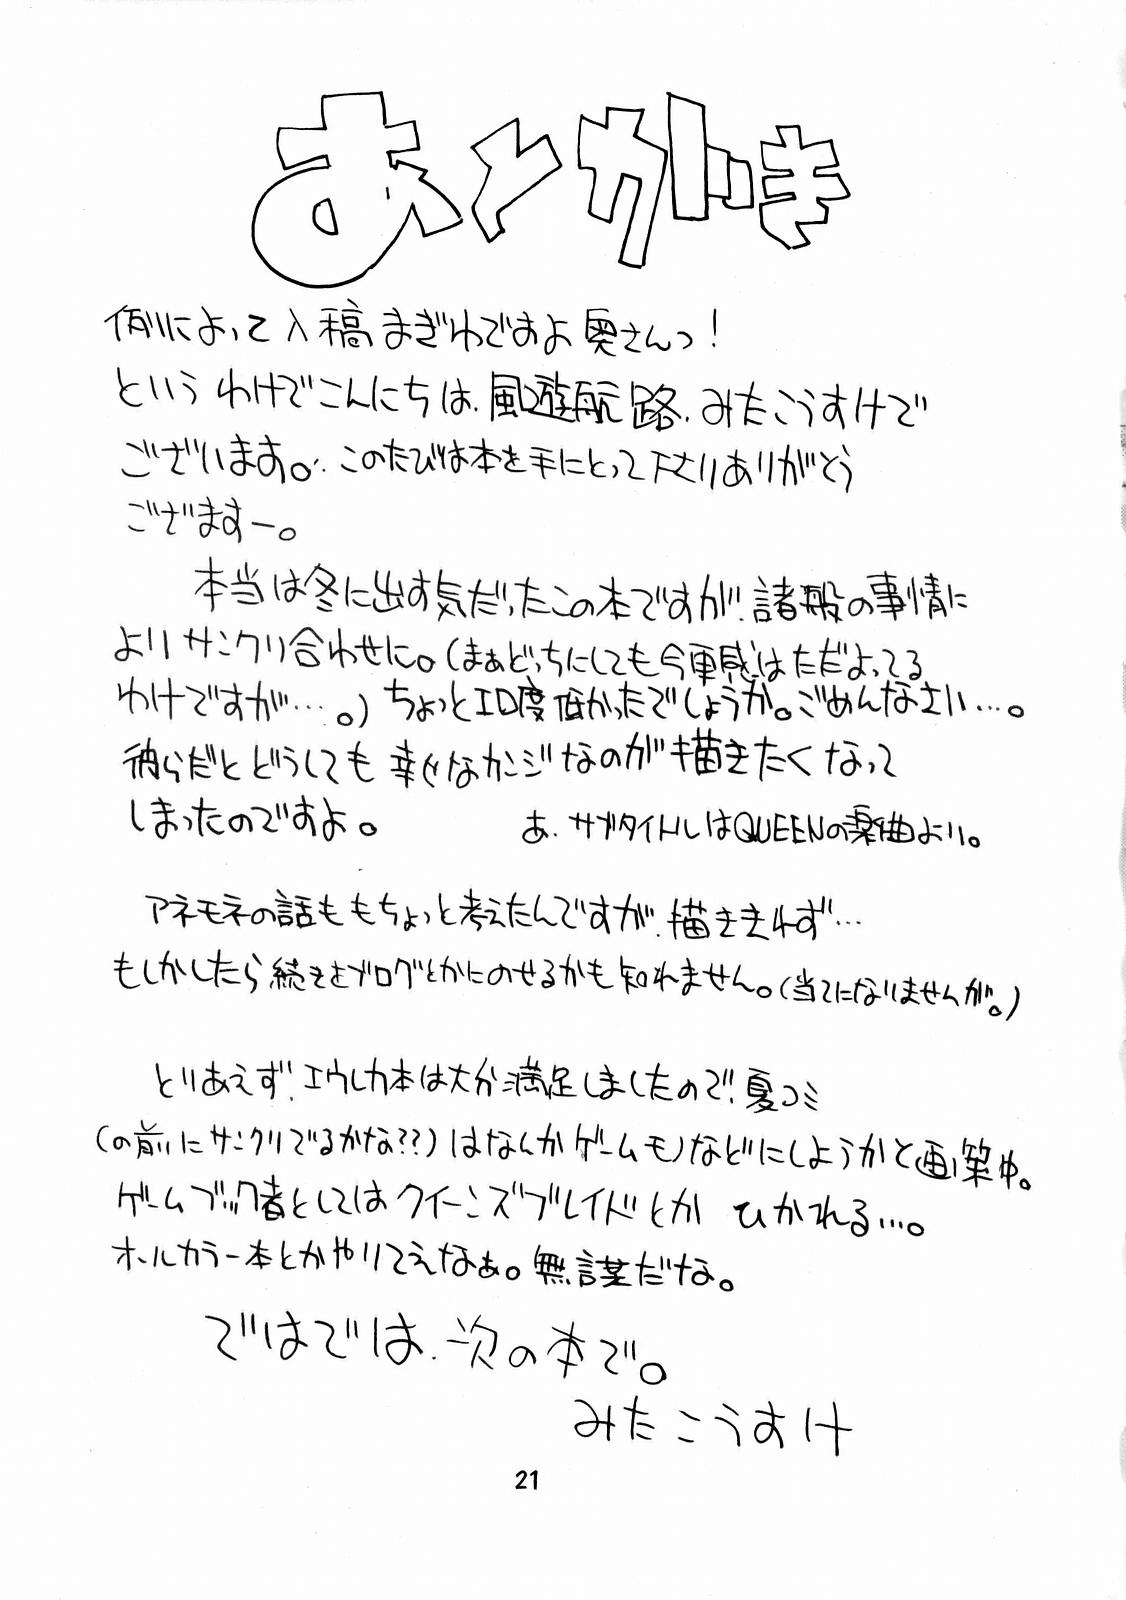 あとがき
例によって入稿まぎわですよ奥さんっ!
というわけでこんにちは、風遊航路、みたこうすけで
ございます。このたびは本を手にとって下さりありがとう
ござますー。
本当は冬に出す気だったこの本ですが、諸般の事情に
よりサンクリ合わせに。(まぁどっちにしても今更感はただよってる
わけですが…。)ちょっとエロ度低かったでしょうか。ごめんなさい…。
彼らだとどうしても幸せなカンジなのが描きたくなって
しまったのですよ。
あ、サブタイトルはQUEENの楽曲より。
アネモネの話ももちょっと考えたんですが、描ききれず…
もしかしたら続きをブログとかにのせるかも知れません。(当てになりませんが。)
とりあえず、エウレカ本は大分満足しましたので、夏コミ
(の前にサンクリでるかな??)はなんかゲームモノなどにしようかと画策中。
ゲームブック者としてはクイーンズブレイドとか ひかれる…。
オールカラー本とかやりてえなぁ。無謀だな。
ではでは、次の本で。
みたこうすけ
21